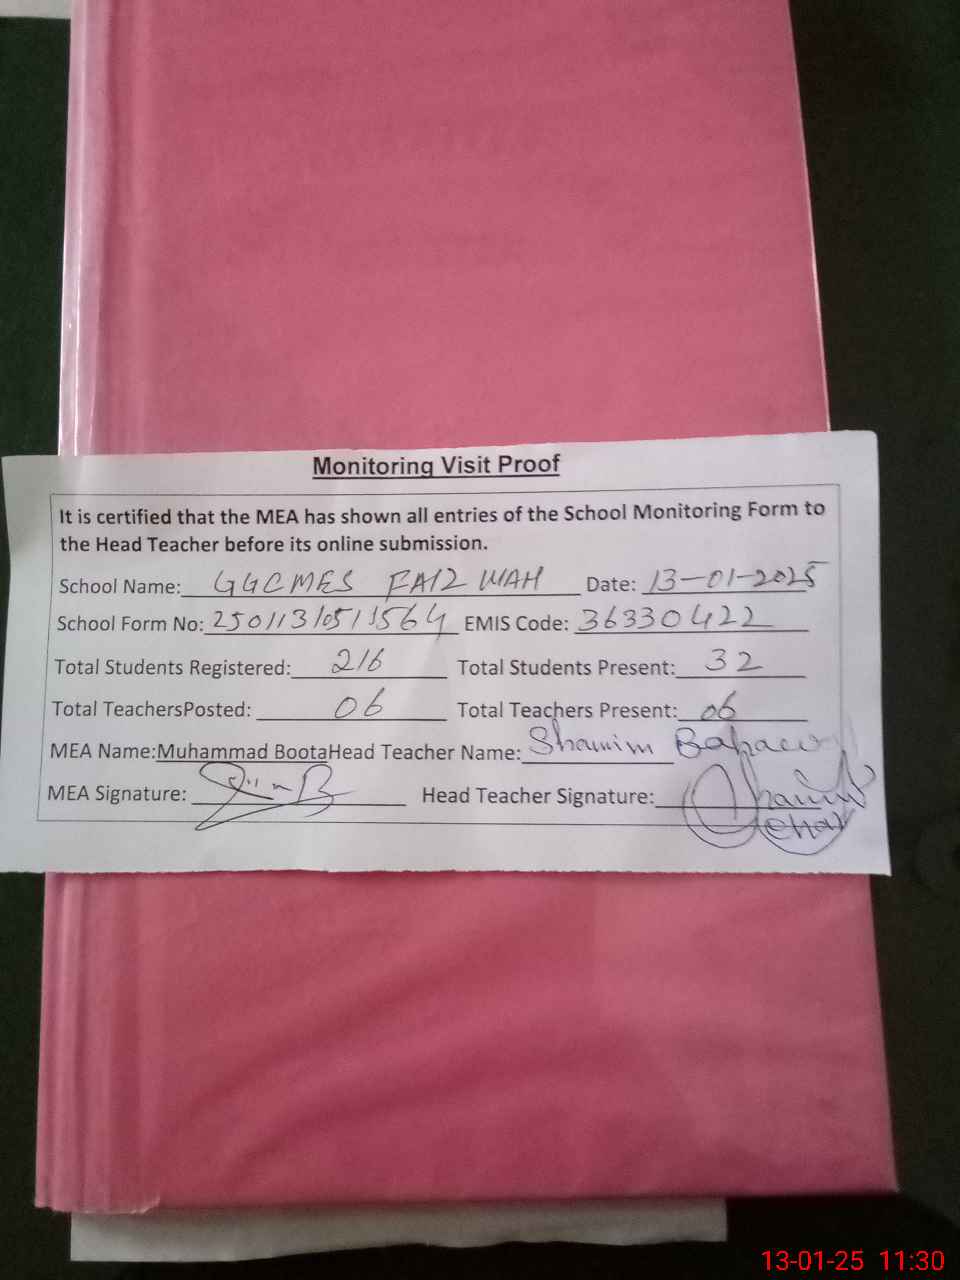 Monitoring Visit Proof
It is certified that the MEA has shown all entries of the School Monitoring Form to
the Head Teacher before its online submission.
School Name: GGCMES FAIZ WAH Date: 13-01-2025
School Form No: EMIS Code: 36330422
Total Students Registered: 216 Total Students Present: 32
Total TeachersPosted: 06 Total Teachers Present: 06
MEA Name:Muhammad BootaHead Teacher Name: Shamim
MEA Signature: Head Teacher Signature:
13-01-25 11:30